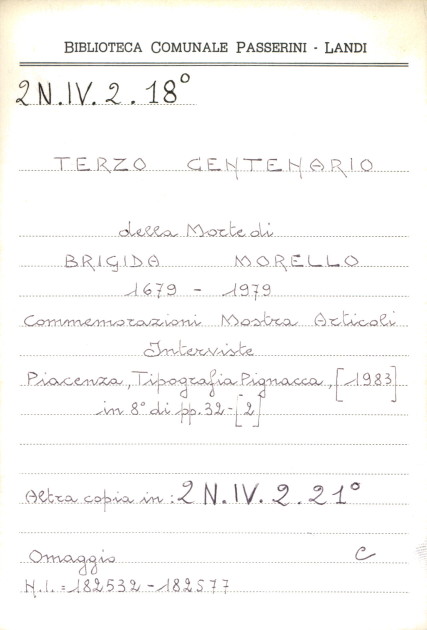 BIBLIOTECA COMUNALE PASSERINI - LANDI
2 N.IV.2.18°
TERZO CENTENARIO
della Morte di
BRIGIDA MORELLO
1679 - 1979
Commemorazioni Mostra Articoli
Interviste
Piacenza, Tipografia Pignacca, [1983]
in 8° di pp. 32-[2]
Altra copia in: 2 N.IV.2.21°
Omaggio C
N.I. = 182532 - 182577